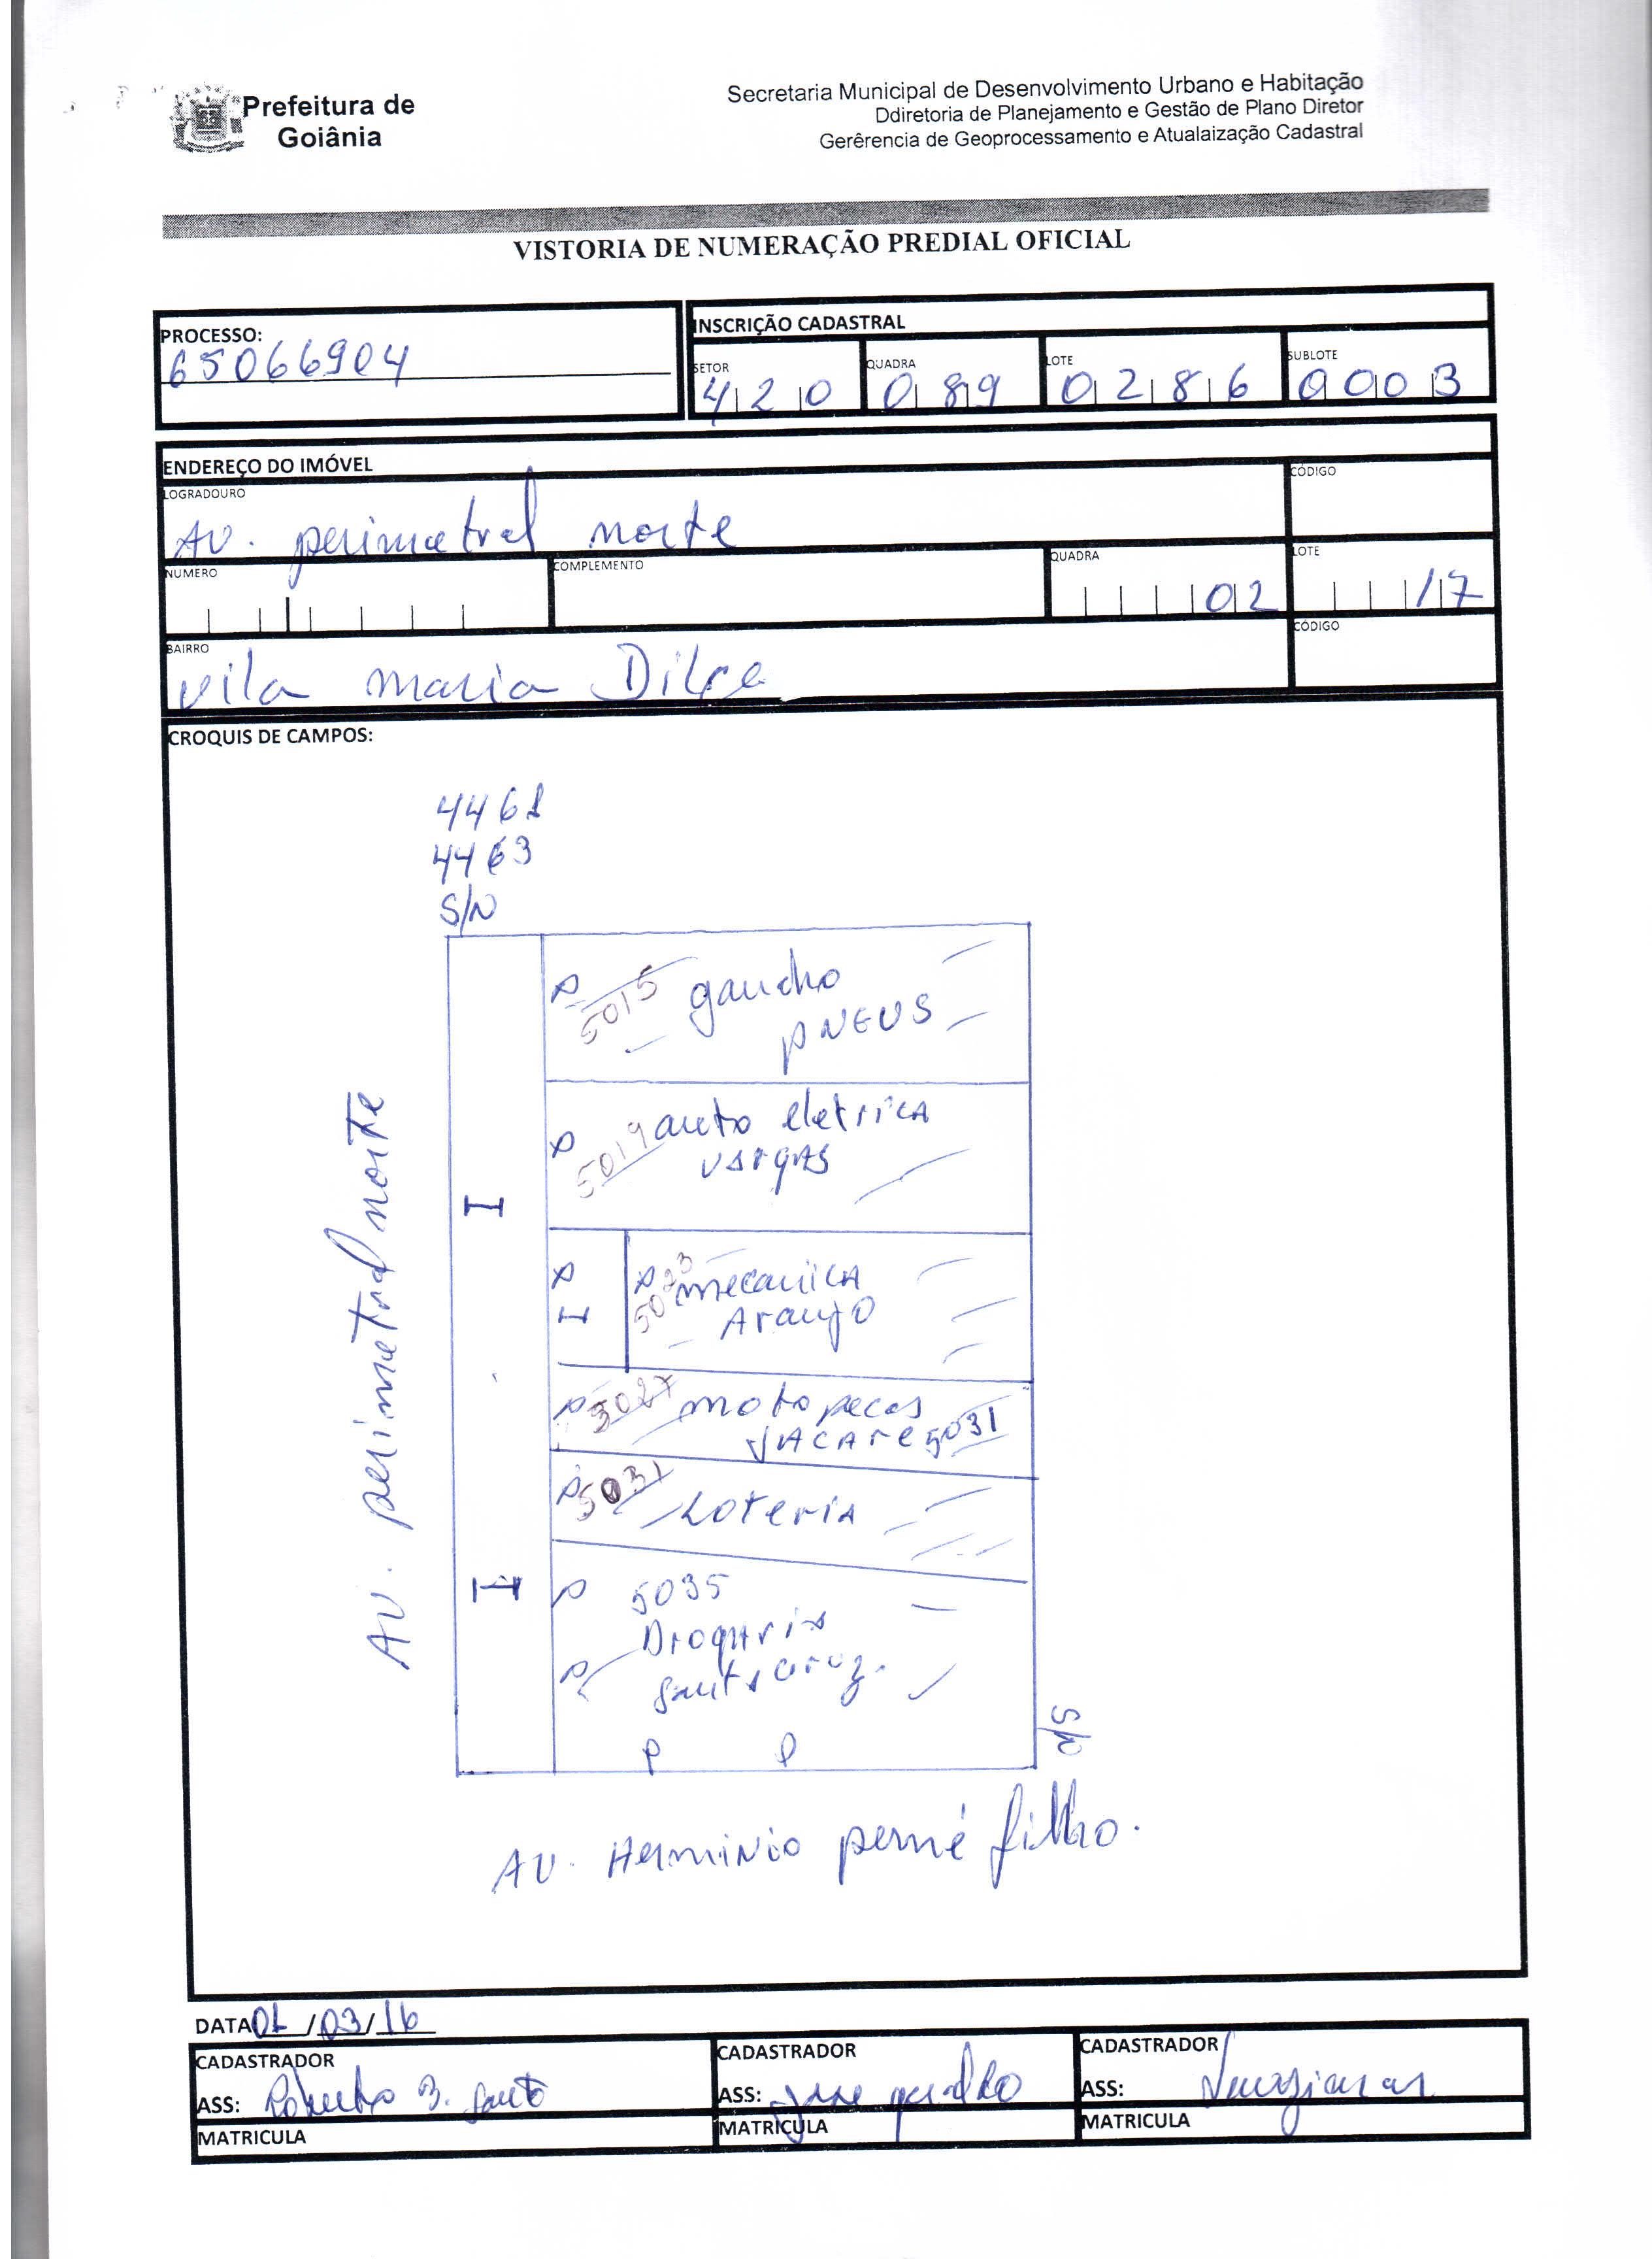 Prefeitura de
Goiânia
Secretaria Municipal de Desenvolvimento Urbano e Habitação
Ddiretoria de Planejamento e Gestão de Plano Diretor
Gerêrencia de Geoprocessamento e Atualaização Cadastral
VISTORIA DE NUMERAÇÃO PREDIAL OFICIAL
PROCESSO:
65066904
INSCRIÇÃO CADASTRAL
SETOR QUADRA LOTE SUBLOTE
420 089 0286 0003
ENDEREÇO DO IMÓVEL
LOGRADOURO CÓDIGO
AV. perimetral norte
NUMERO COMPLEMENTO QUADRA LOTE
02 17
BAIRRO CÓDIGO
vila maria Dilce
CROQUIS DE CAMPOS:
4461
4463
S/N
AV. perimetral norte
P 5015 gaucho
PNEUS
P 5019 auto eletrica
VARGAS
I
P P 5023 mecanica
I Araujo
P 5027 moto pecas
JACARE 5031
P 5031 Loteria
I
P 5035
Drogaria
P Santa Cruz.
P P
S/N
AV. Herminio perné filho.
DATA 01/03/16
CADASTRADOR CADASTRADOR CADASTRADOR
ASS: Roberto B. Santo ASS: ASS:
MATRICULA MATRICULA MATRICULA